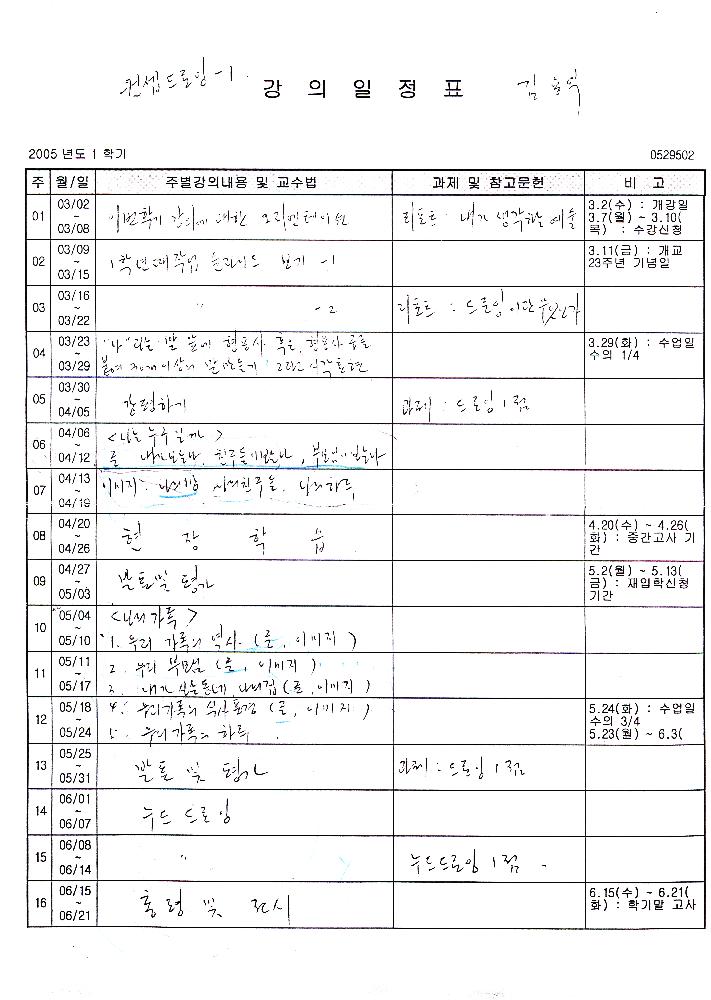 컨셉드로잉-1.
강 의 일 정 표
김
2005 년도 1 학기
0529502
주 월/일 주별강의내용 및 교수법 과제 및 참고문헌 비 고
01 03/02 ~ 03/08
이번학기 강의에 대한 오리엔테이션
리포트 : 내가 생각하는 예술
3.2(수) : 개강일
3.7(월) ~ 3.10(
목) : 수강신청
02 03/09 ~ 03/15
1학년 작업 슬라이드 보기 -1
3.11(금) : 개교
23주년 기념일
03 03/16 ~ 03/22
" -2
리포트 : 드로잉이란 무엇인가
04 03/23 ~ 03/29
"나" 라는 말 앞에 형용사 혹은, 형용사구를
붙여 30개이상의 말 만들기
3.29(화) : 수업일
수의 1/4
05 03/30 ~ 04/05
강평하기
과제 : 드로잉 1점
06 04/06 ~ 04/12
<나는 누구일까>
글 내가보는나, 친구들이보는나, 부모님이보는나
07 04/13 ~ 04/19
이미지: 나의방, 나의친구들, 나의하루
08 04/20 ~ 04/26
현 장 학 습
4.20(수) ~ 4.26(
화) : 중간고사 기
간
09 04/27 ~ 05/03
발표및 평가
5.2(월) ~ 5.13(
금) : 재입학신청
기간
10 05/04 ~ 05/10
<나의가족>
1. 우리 가족의 역사 (글, 이미지)
11 05/11 ~ 05/17
2. 우리 부모님 (글, 이미지)
3. 내가 사는동네, 나의집 (글, 이미지)
12 05/18 ~ 05/24
4. 우리가족의 환경 (글, 이미지)
5. 우리가족의 하루
5.24(화) : 수업일
수의 3/4
5.23(월) ~ 6.3(
13 05/25 ~ 05/31
발표 및 평가
과제 : 드로잉 1점
14 06/01 ~ 06/07
누드 드로잉
15 06/08 ~ 06/14
"
누드드로잉 1점
16 06/15 ~ 06/21
총평 및 전시
6.15(수) ~ 6.21(
화) : 학기말 고사